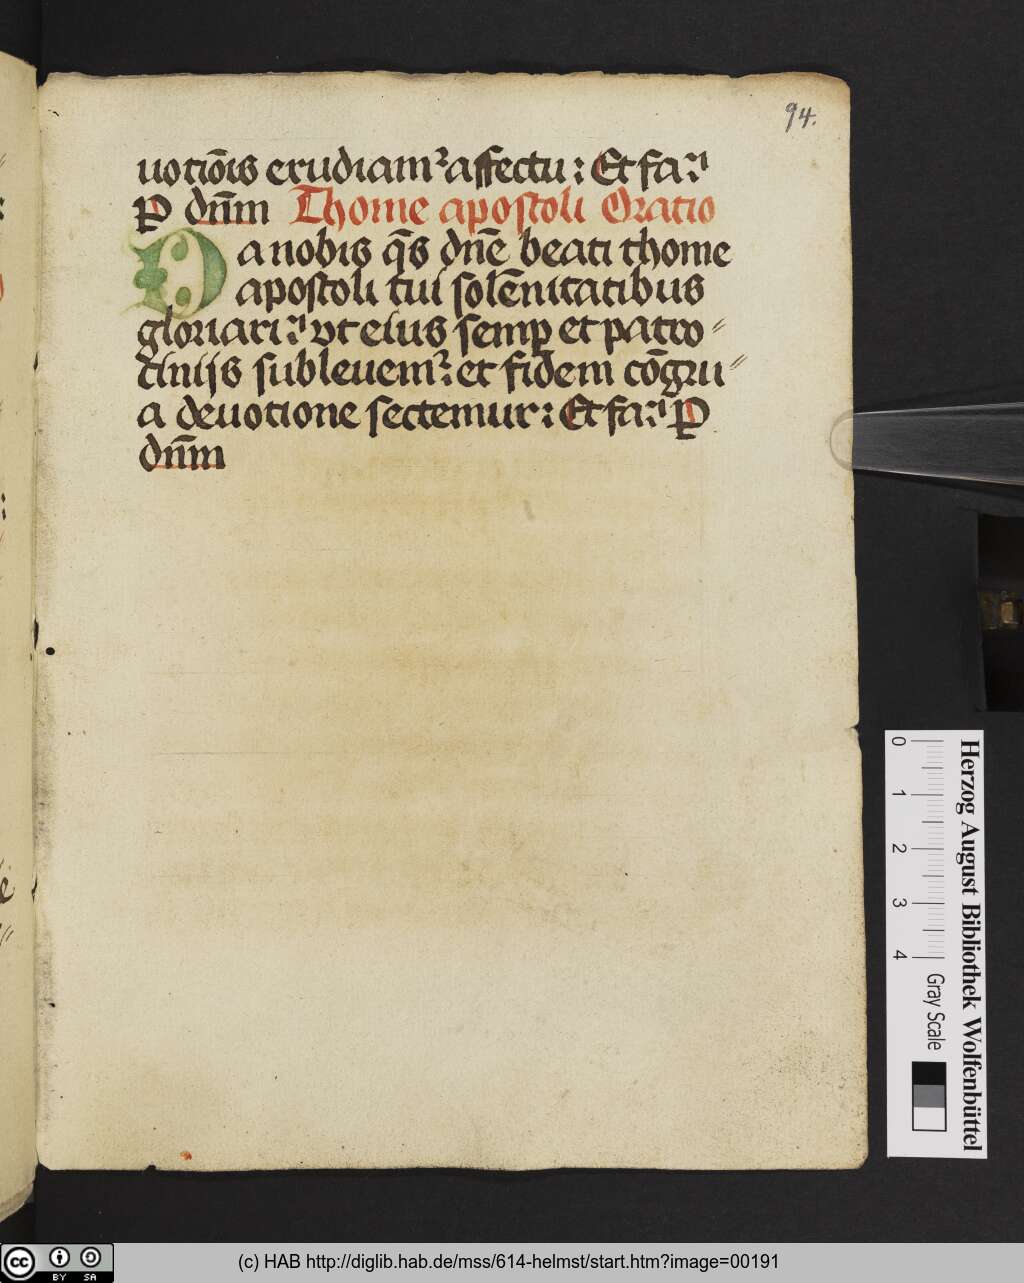 94.
uotiōis erudiamꝰ affectu: Et faꝰ
P dn̄m Thome apostoli Oratio
Da nobis q̄s dn̄e beati thome
apostoli tui solēnitatibus
gloriariꝰ vt eius semp et patro-
cinijs subleuemꝰ: et fidem cōgru-
a deuotione sectemur: Et faꝰ P
dn̄m
Herzog August Bibliothek Wolfenbüttel
0 1 2 3 4 Gray Scale
cc BY SA
(c) HAB http://diglib.hab.de/mss/614-helmst/start.htm?image=00191